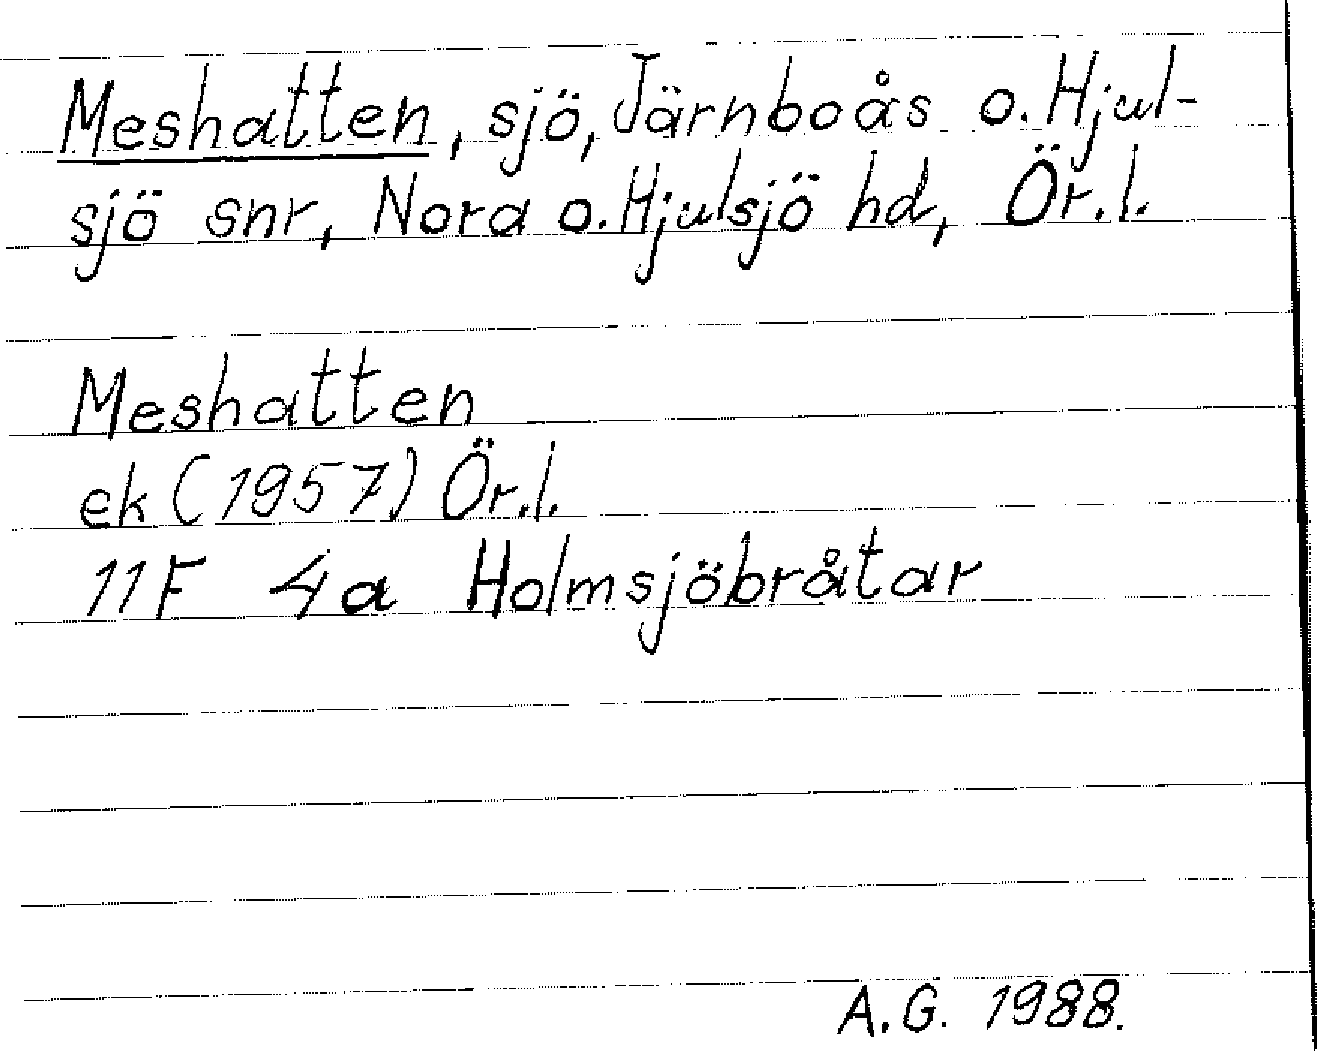 Meshatten, sjö, Järnboås o. Hjul-
sjö snr, Nora o. Hjulsjö hd, Ör.l.
Meshatten
ek (1957) Ör.l.
11F 4a Holmsjöbråtar
A.G. 1988.